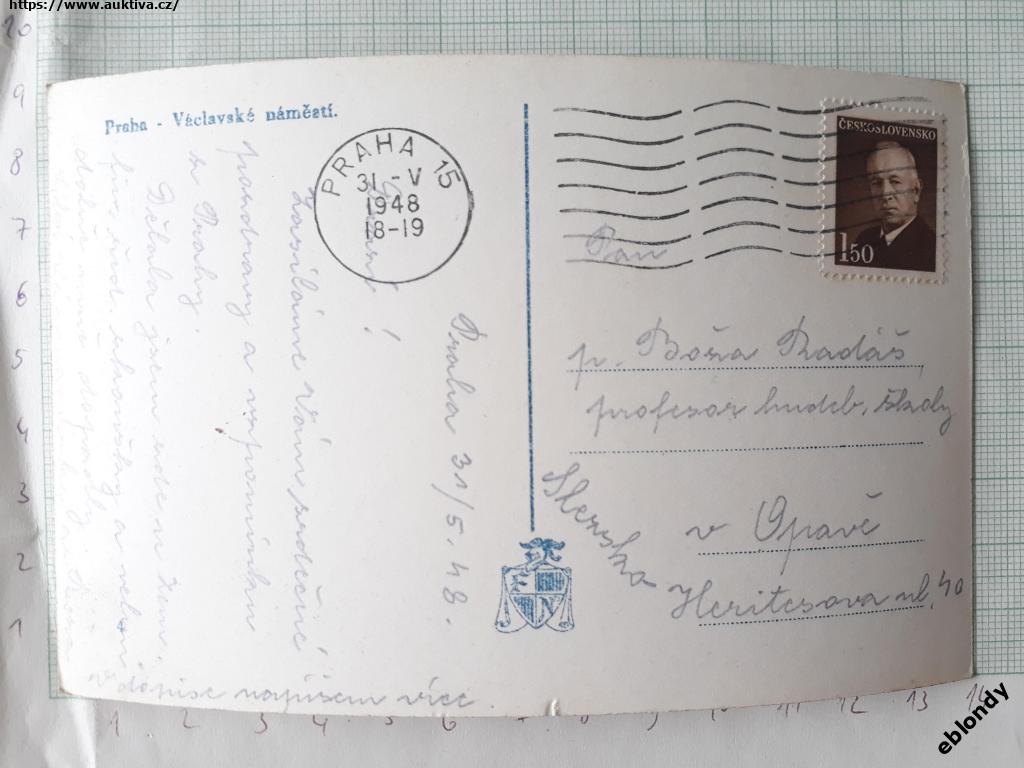 https://www.auktiva.cz/
Praha - Václavské náměstí.
PRAHA 15
31.-V
1948
18-19
ČESKOSLOVENSKO
1.50
Praha 31/5.48.
!
Zasíláme Vám srdečné
pozdravy a vzpomínku
z Prahy.
Dělala jsem
a velmi
dobře dopadly
V dopise napíšem více.
Pan
p. Boža Radáš
profesor hudeb. školy
v Opavě
Slezsko
Heritesova ul. 40
10
9
8
7
6
5
4
3
2
1
1 2 3 4 5 6 7 8 9 10 11 12 13 14
eblondy